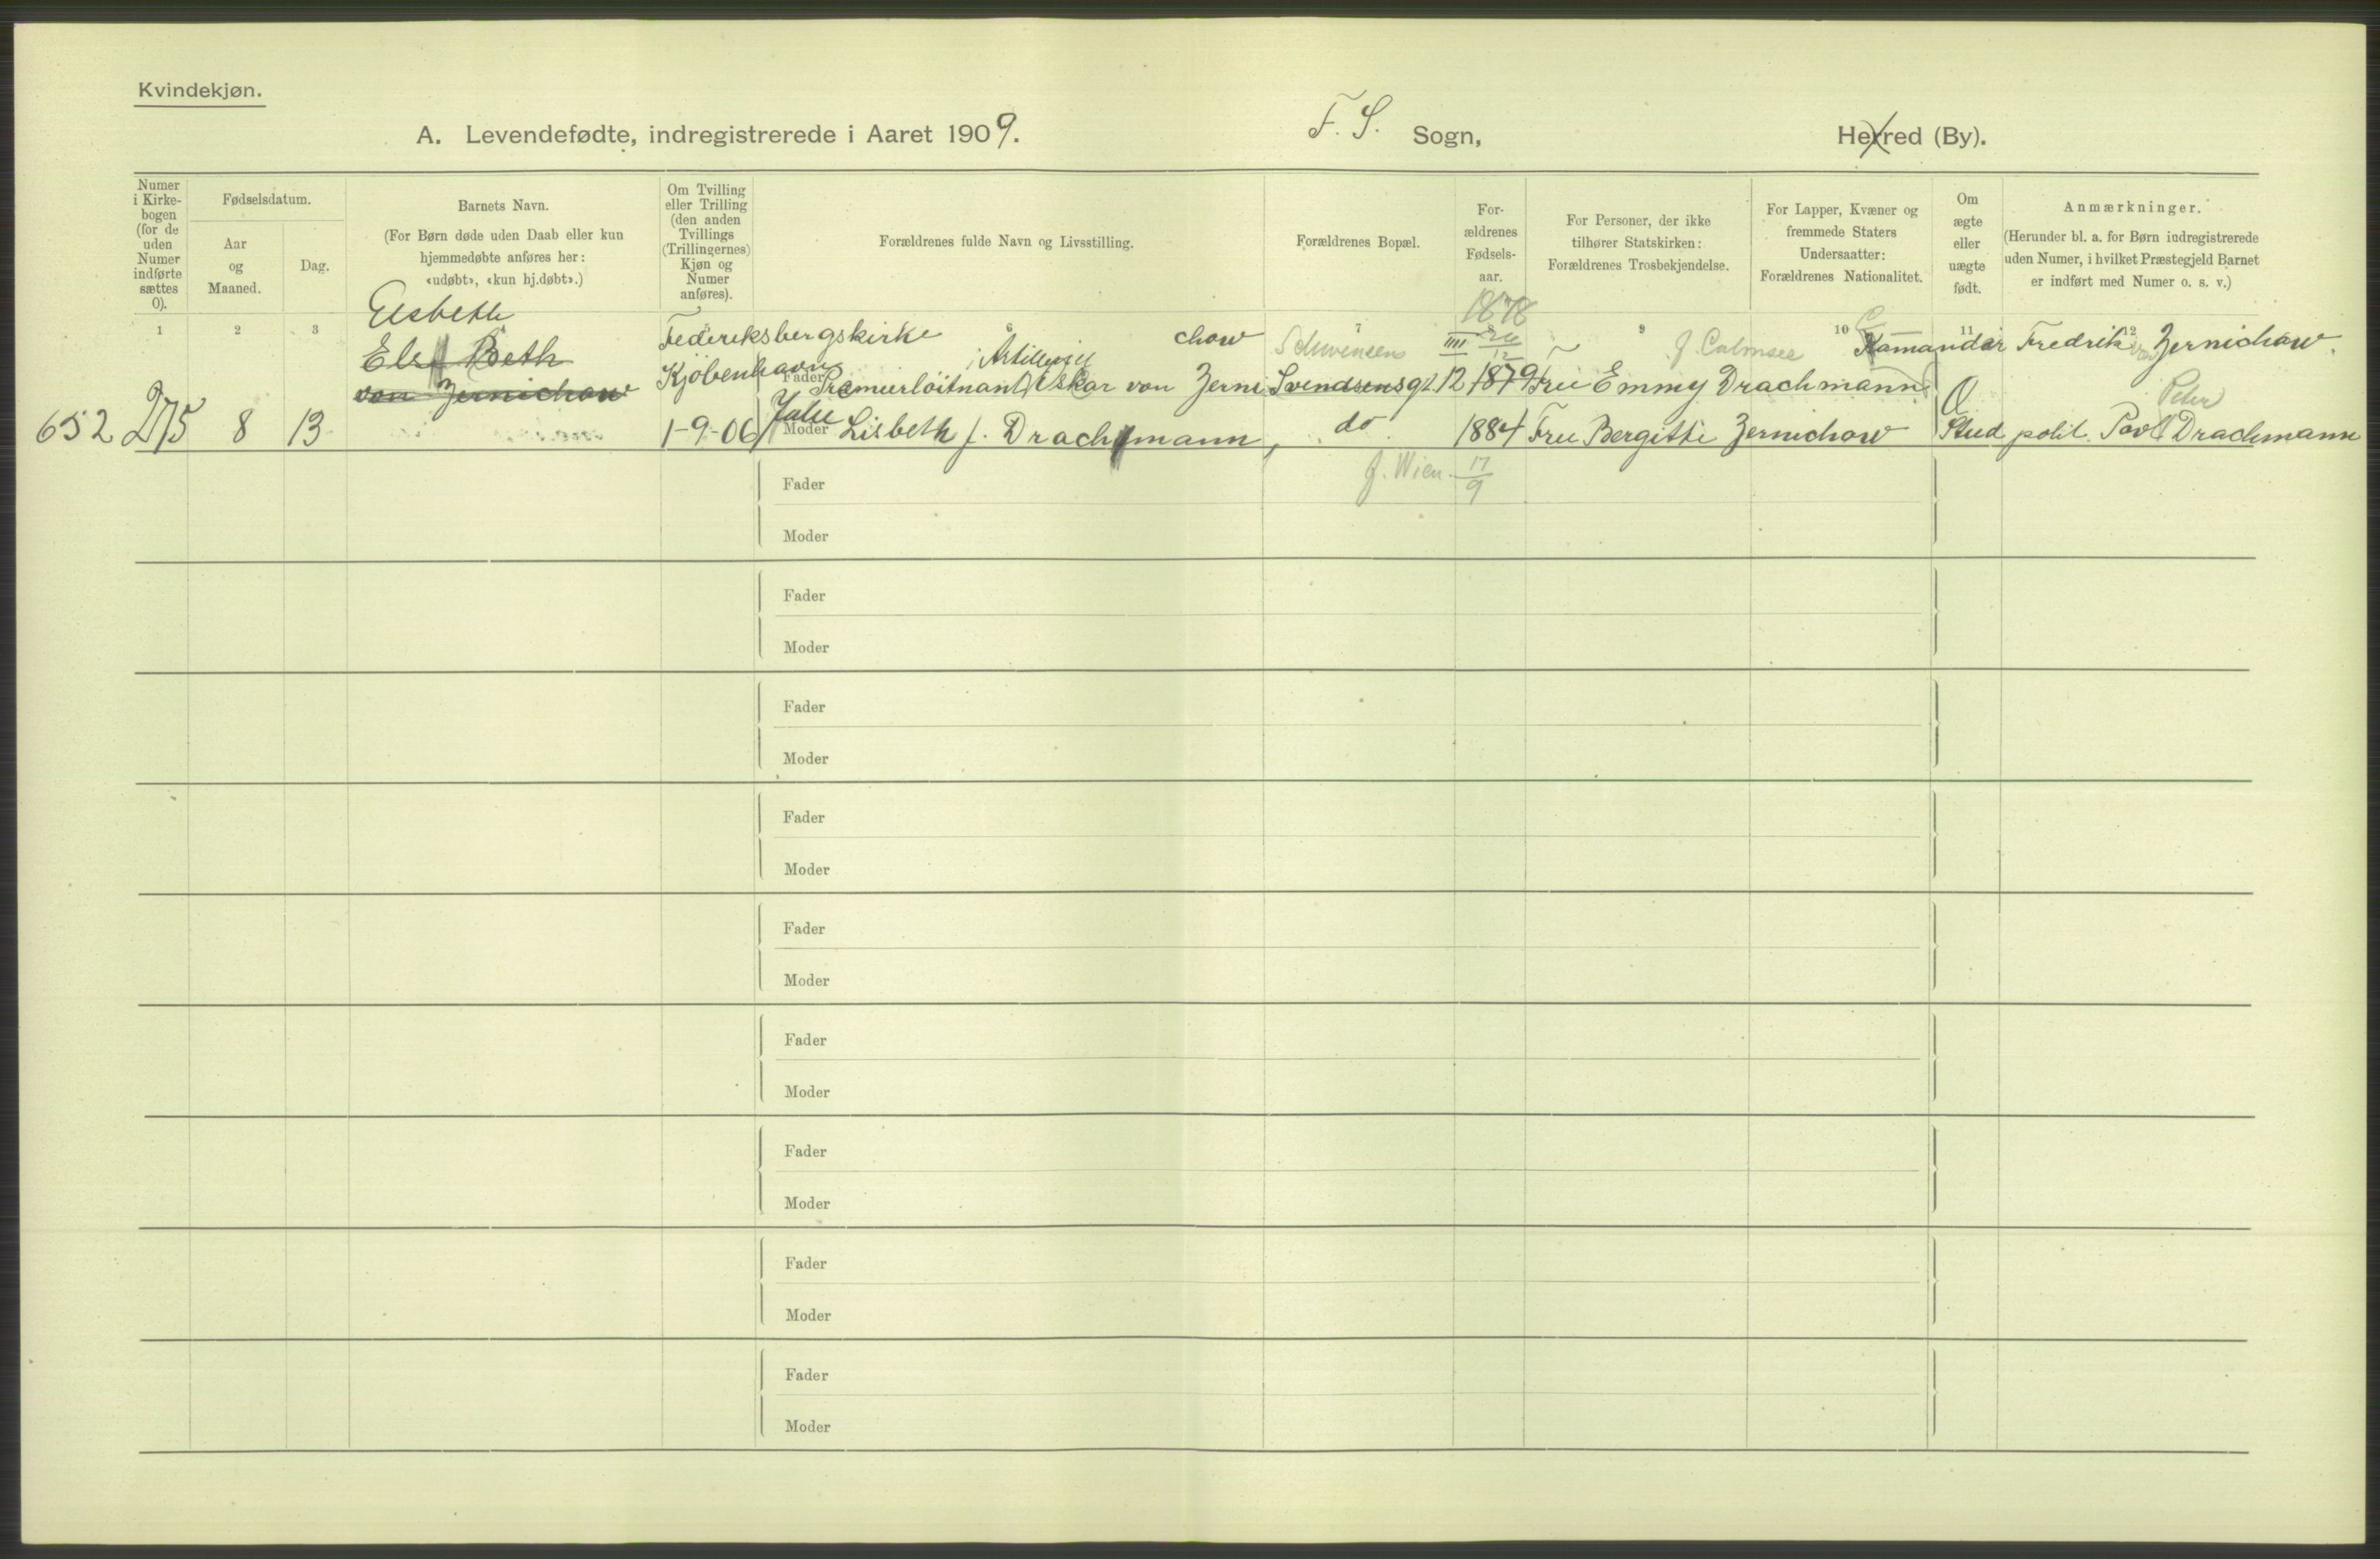 Kvindekjøn.
A. Levendefødte, indregistrerede i Aaret 1909.
F. S. Sogn,
Herred (By).
Numer
i Kirke-
bogen
(for de
uden
Numer
indførte
sættes
0).
Fødselsdatum.
Aar
og
Maaned.
Dag.
Barnets Navn.
(For Børn døde uden Daab eller kun
hjemmedøbte anføres her:
«udøbt», «kun hj.døbt».)
Om Tvilling
eller Trilling
(den anden
Tvillings
(Trillingernes)
Kjøn og
Numer
anføres).
Forældrenes fulde Navn og Livsstilling.
Forældrenes Bopæl.
For-
ældrenes
Fødsels-
aar.
For Personer, der ikke
tilhører Statskirken:
Forældrenes Trosbekjendelse.
For Lapper, Kvæner og
fremmede Staters
Undersaatter:
Forældrenes Nationalitet.
Om
ægte
eller
uægte
født.
Anmærkninger.
(Herunder bl. a. for Børn indregistrerede
uden Numer, i hvilket Præstegjeld Barnet
er indført med Numer o. s. v.)
1 2 3 7 8 9 10 11 12
Elsbeth
Else Beth
von Zernichow
652 275 8 13
Federeksbergskirke
Kjöbenhavn
1-9-06
i Artilleriet chow
Fader Premierlöitnant Oskar von Zerni
Julie
Moder Lisbeth f. Drachmann,
Schwensens
Svendsensgt. 12
do
1878
1879
1884
f. Wien 17/9
Fru Emmy Drachmann
Fru Bergitte Zernichow
Kamandör Fredrik von Zernichow.
Peter
Stud polit. Povl Drachmann
Fader
Moder
Fader
Moder
Fader
Moder
Fader
Moder
Fader
Moder
Fader
Moder
Fader
Moder
Fader
Moder
Fader
Moder